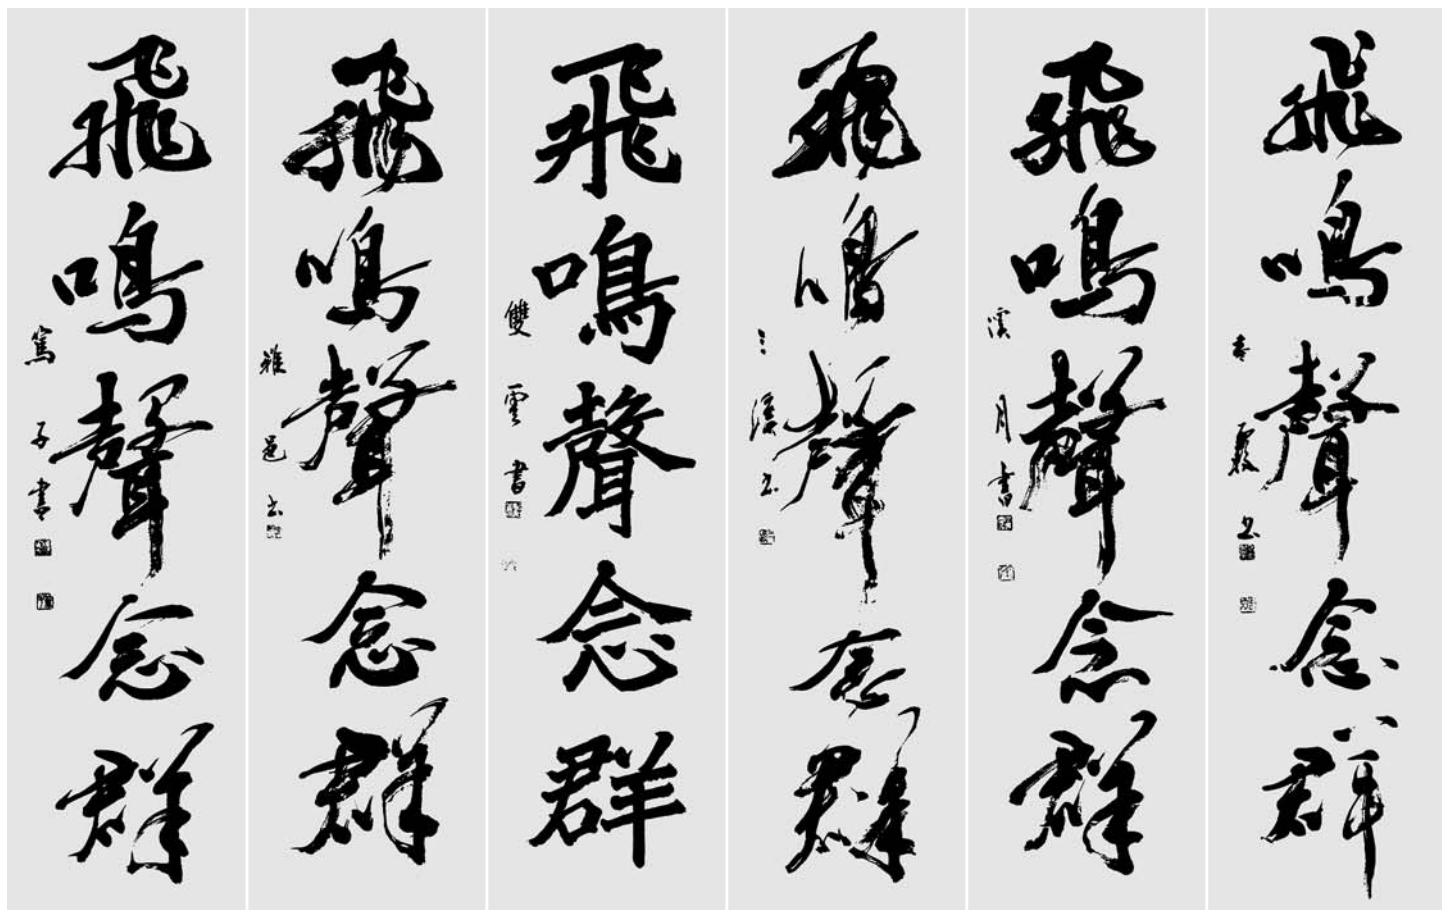 飛鳴聲念群
春霞書
飛鳴聲念群
溪月書
飛鳴聲念群
三溪書
飛鳴聲念群
雙雲書
飛鳴聲念群
雅邑書
飛鳴聲念群
篤子書